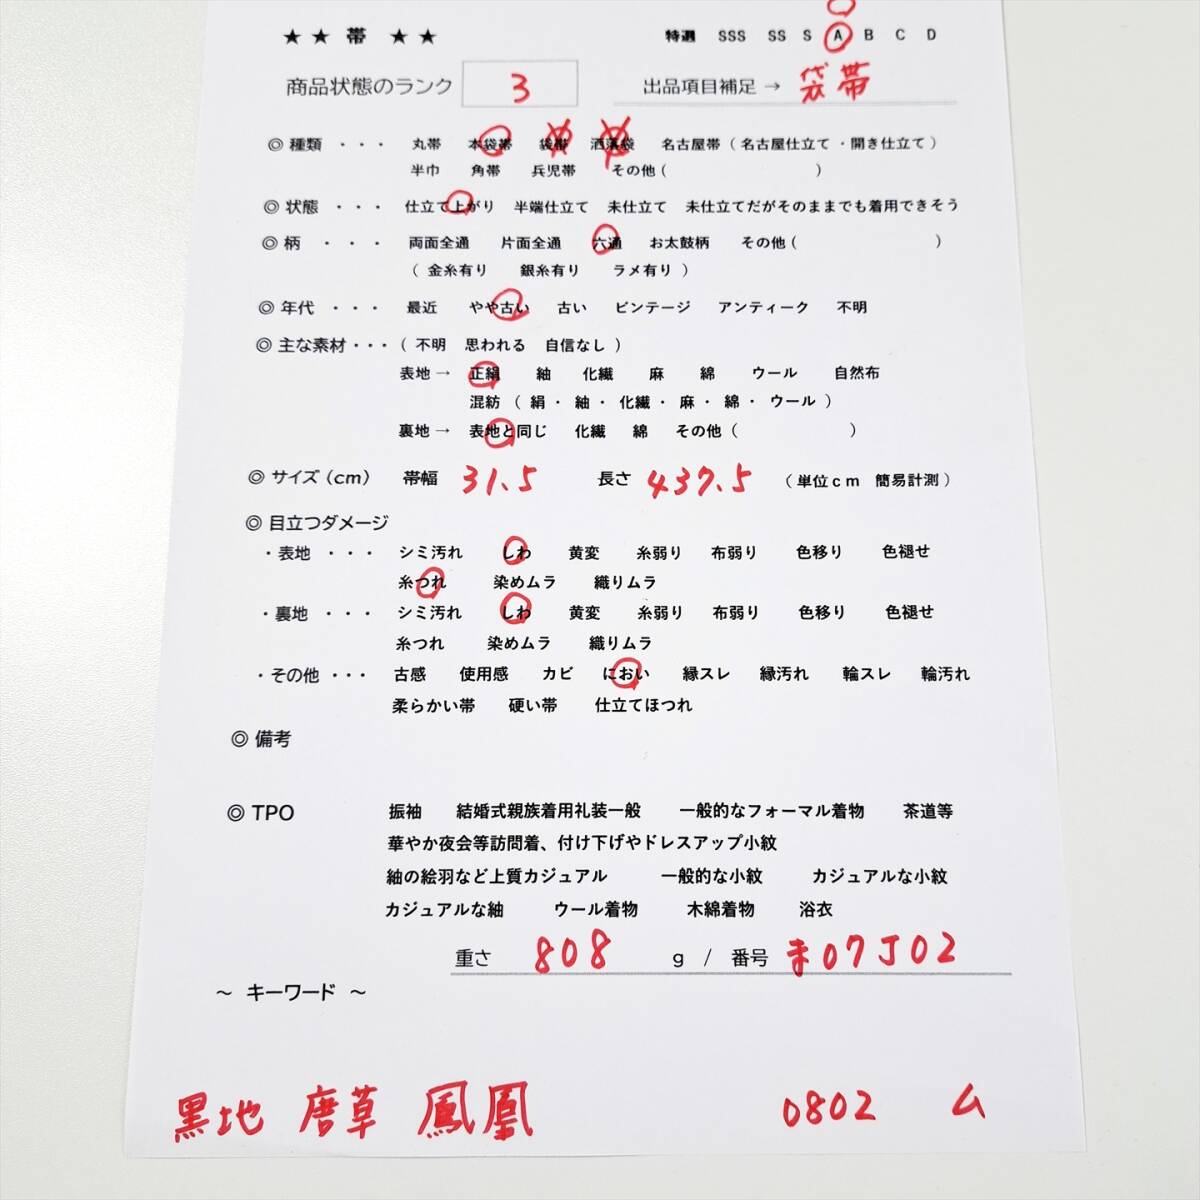 ★ ★ 帯 ★ ★ 特選 SSS SS S A B C D
商品状態のランク 3 出品項目補足 → 袋帯
◎ 種類 ・・・ 丸帯 本袋帯 袋帯 洒落袋 名古屋帯 ( 名古屋仕立て ・開き仕立て )
半巾 角帯 兵児帯 その他 ( )
◎ 状態 ・・・ 仕立て上がり 半端仕立て 未仕立て 未仕立てだがそのままでも着用できそう
◎ 柄 ・・・ 両面全通 片面全通 六通 お太鼓柄 その他 ( )
( 金糸有り 銀糸有り ラメ有り )
◎ 年代 ・・・ 最近 やや古い 古い ビンテージ アンティーク 不明
◎ 主な素材・・・ ( 不明 思われる 自信なし )
表地 → 正絹 紬 化繊 麻 綿 ウール 自然布
混紡 ( 絹・紬・化繊・麻・綿・ウール )
裏地 → 表地と同じ 化繊 綿 その他 ( )
◎ サイズ (cm) 帯幅 31.5 長さ 437.5 ( 単位cm 簡易計測 )
◎ 目立つダメージ
・表地 ・・・ シミ汚れ しわ 黄変 糸弱り 布弱り 色移り 色褪せ
糸つれ 染めムラ 織りムラ
・裏地 ・・・ シミ汚れ しわ 黄変 糸弱り 布弱り 色移り 色褪せ
糸つれ 染めムラ 織りムラ
・その他 ・・・ 古感 使用感 カビ におい 縁スレ 縁汚れ 輪スレ 輪汚れ
柔らかい帯 硬い帯 仕立てほつれ
◎ 備考
◎ TPO 振袖 結婚式親族着用礼装一般 一般的なフォーマル着物 茶道等
華やか夜会等訪問着、付け下げやドレスアップ小紋
紬の絵羽など上質カジュアル 一般的な小紋 カジュアルな小紋
カジュアルな紬 ウール着物 木綿着物 浴衣
重さ 808 g / 番号 ま07J02
～ キーワード ～
黒地 唐草 鳳凰 0802 ム